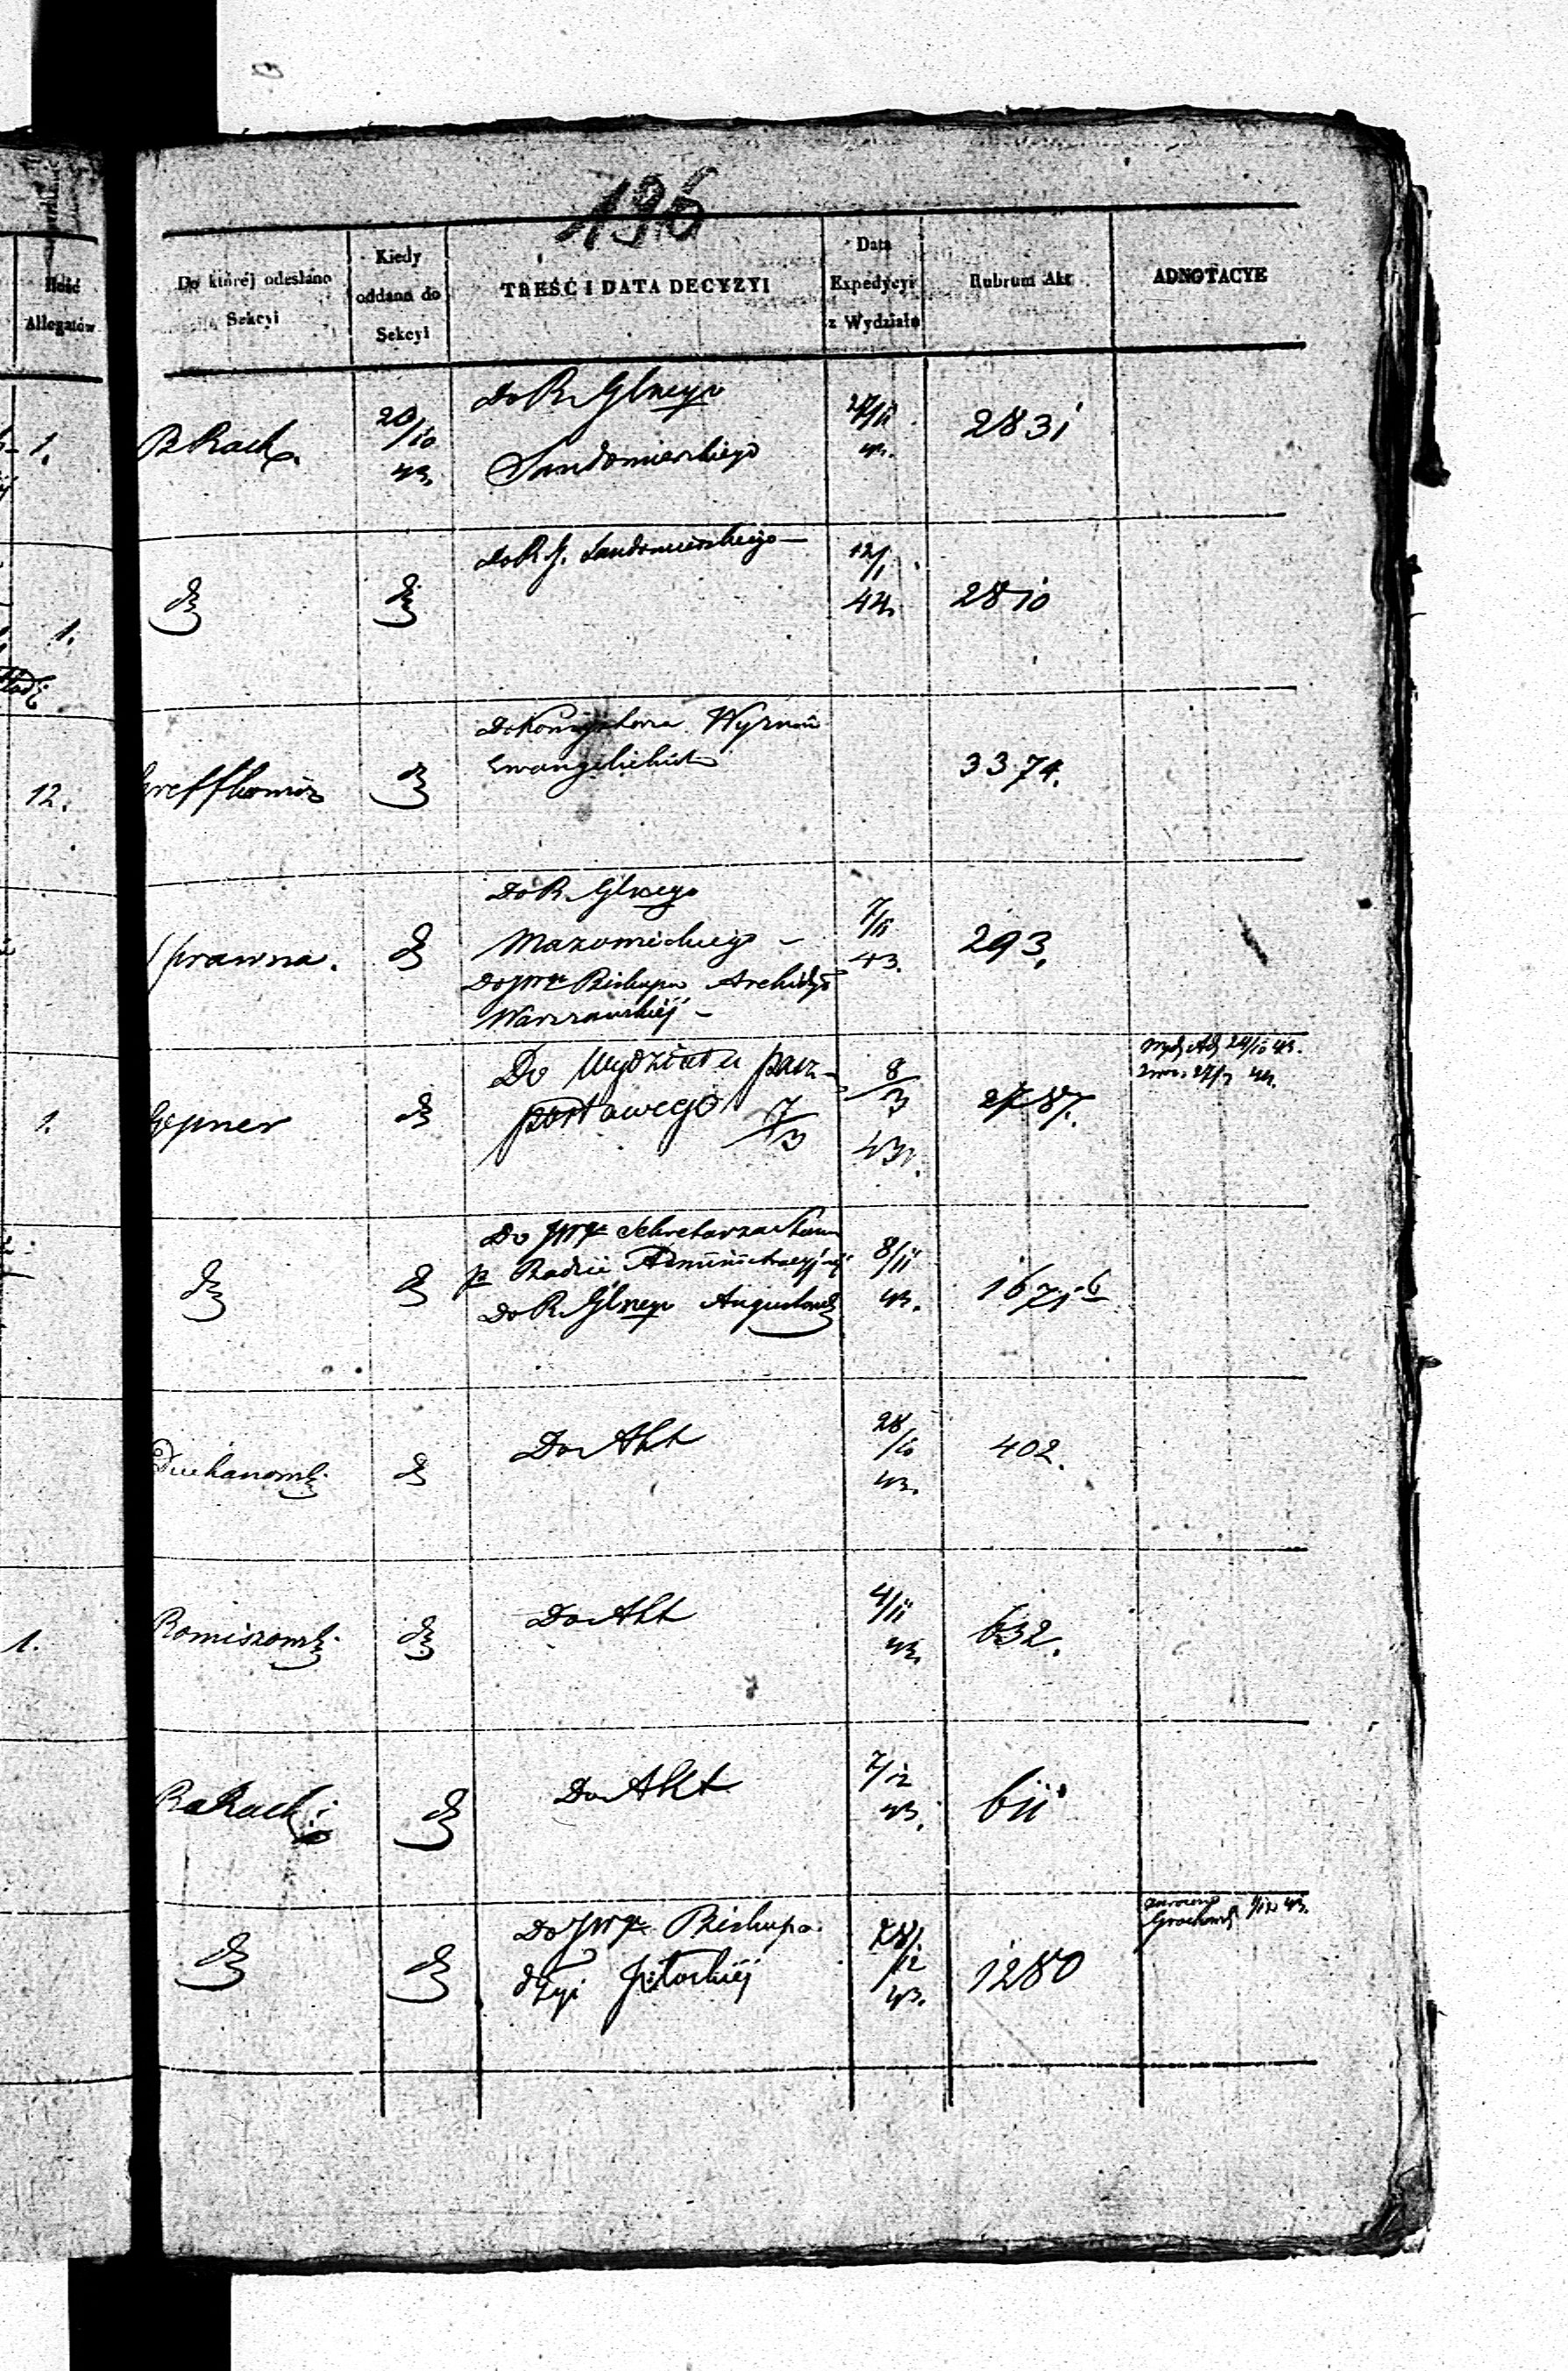 196
Ilość
Allegatów
Do któréj odesłano
Sekcyi
Kiedy
oddana do
Sekcyi
TREŚĆ I DATA DECYZYI
Data
Expedycyi
z Wydziału
Rubrum Akt
ADNOTACYE
1.
20/10
43.
Do R. Glnego
Sandomierskiego
43.
2831
1.
dto
dto
Do R. G. Sandomierskiego —
12/1
44.
2810
12.
dto
Do Konsystorza Wyznań
Ewangelickich
3374.
prawna.
dto
Do R. Glnego
Mazowieckiego —
Do JWgo Biskupa Archidyi
Warszawskiéj —
7/11
43.
293.
1.
Hepner
dto
Do Wydziału pasz-
portowego 17/3
8/3
43.
2787.
24/10 43.
dto
dto
Do JWgo Sekretarza Stanu
p Radzie Administracyjnéj
Do R. Glnego Augustowsk
8/11
43.
1671 b
Duchanowsk
dto
Do Akt
28/10
43.
402.
1.
Romiszowsk
dto
Do Akt
4/11
43.
632.
dto
Do Akt
7/12
43.
611
dto
dto
Do JWgo Biskupa
dyi Płockiéj
28/12
43.
1280
zwrócono
Grochowsk 1/12 43.